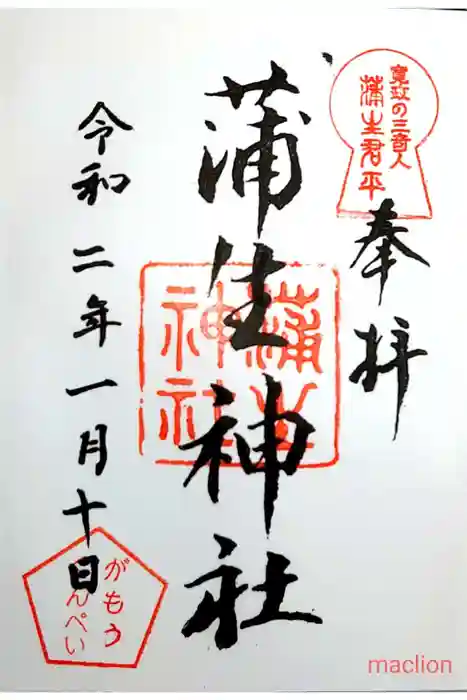 寛政の三奇人
蒲生君平
奉拝
蒲生神社
蒲生
神社
令和二年一月十日
がもう
んぺい
maclion